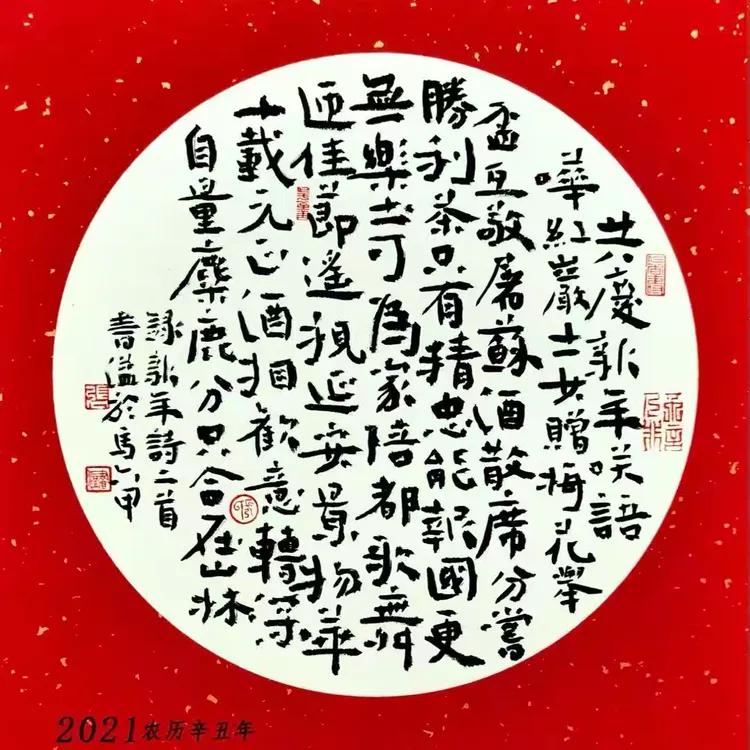 共慶新年笑語
嘩紅巖士女贈梅花舉
盃互敬屠蘇酒散席分嘗
勝利茶只有精忠能報國更
無樂土可為家陪都歌舞
迎佳節遙祝延安景物華
十載元正酒相歡意轉深
自量麋鹿分只合在山林
錄新年詩二首
書溢於馬六甲
2021农历辛丑年